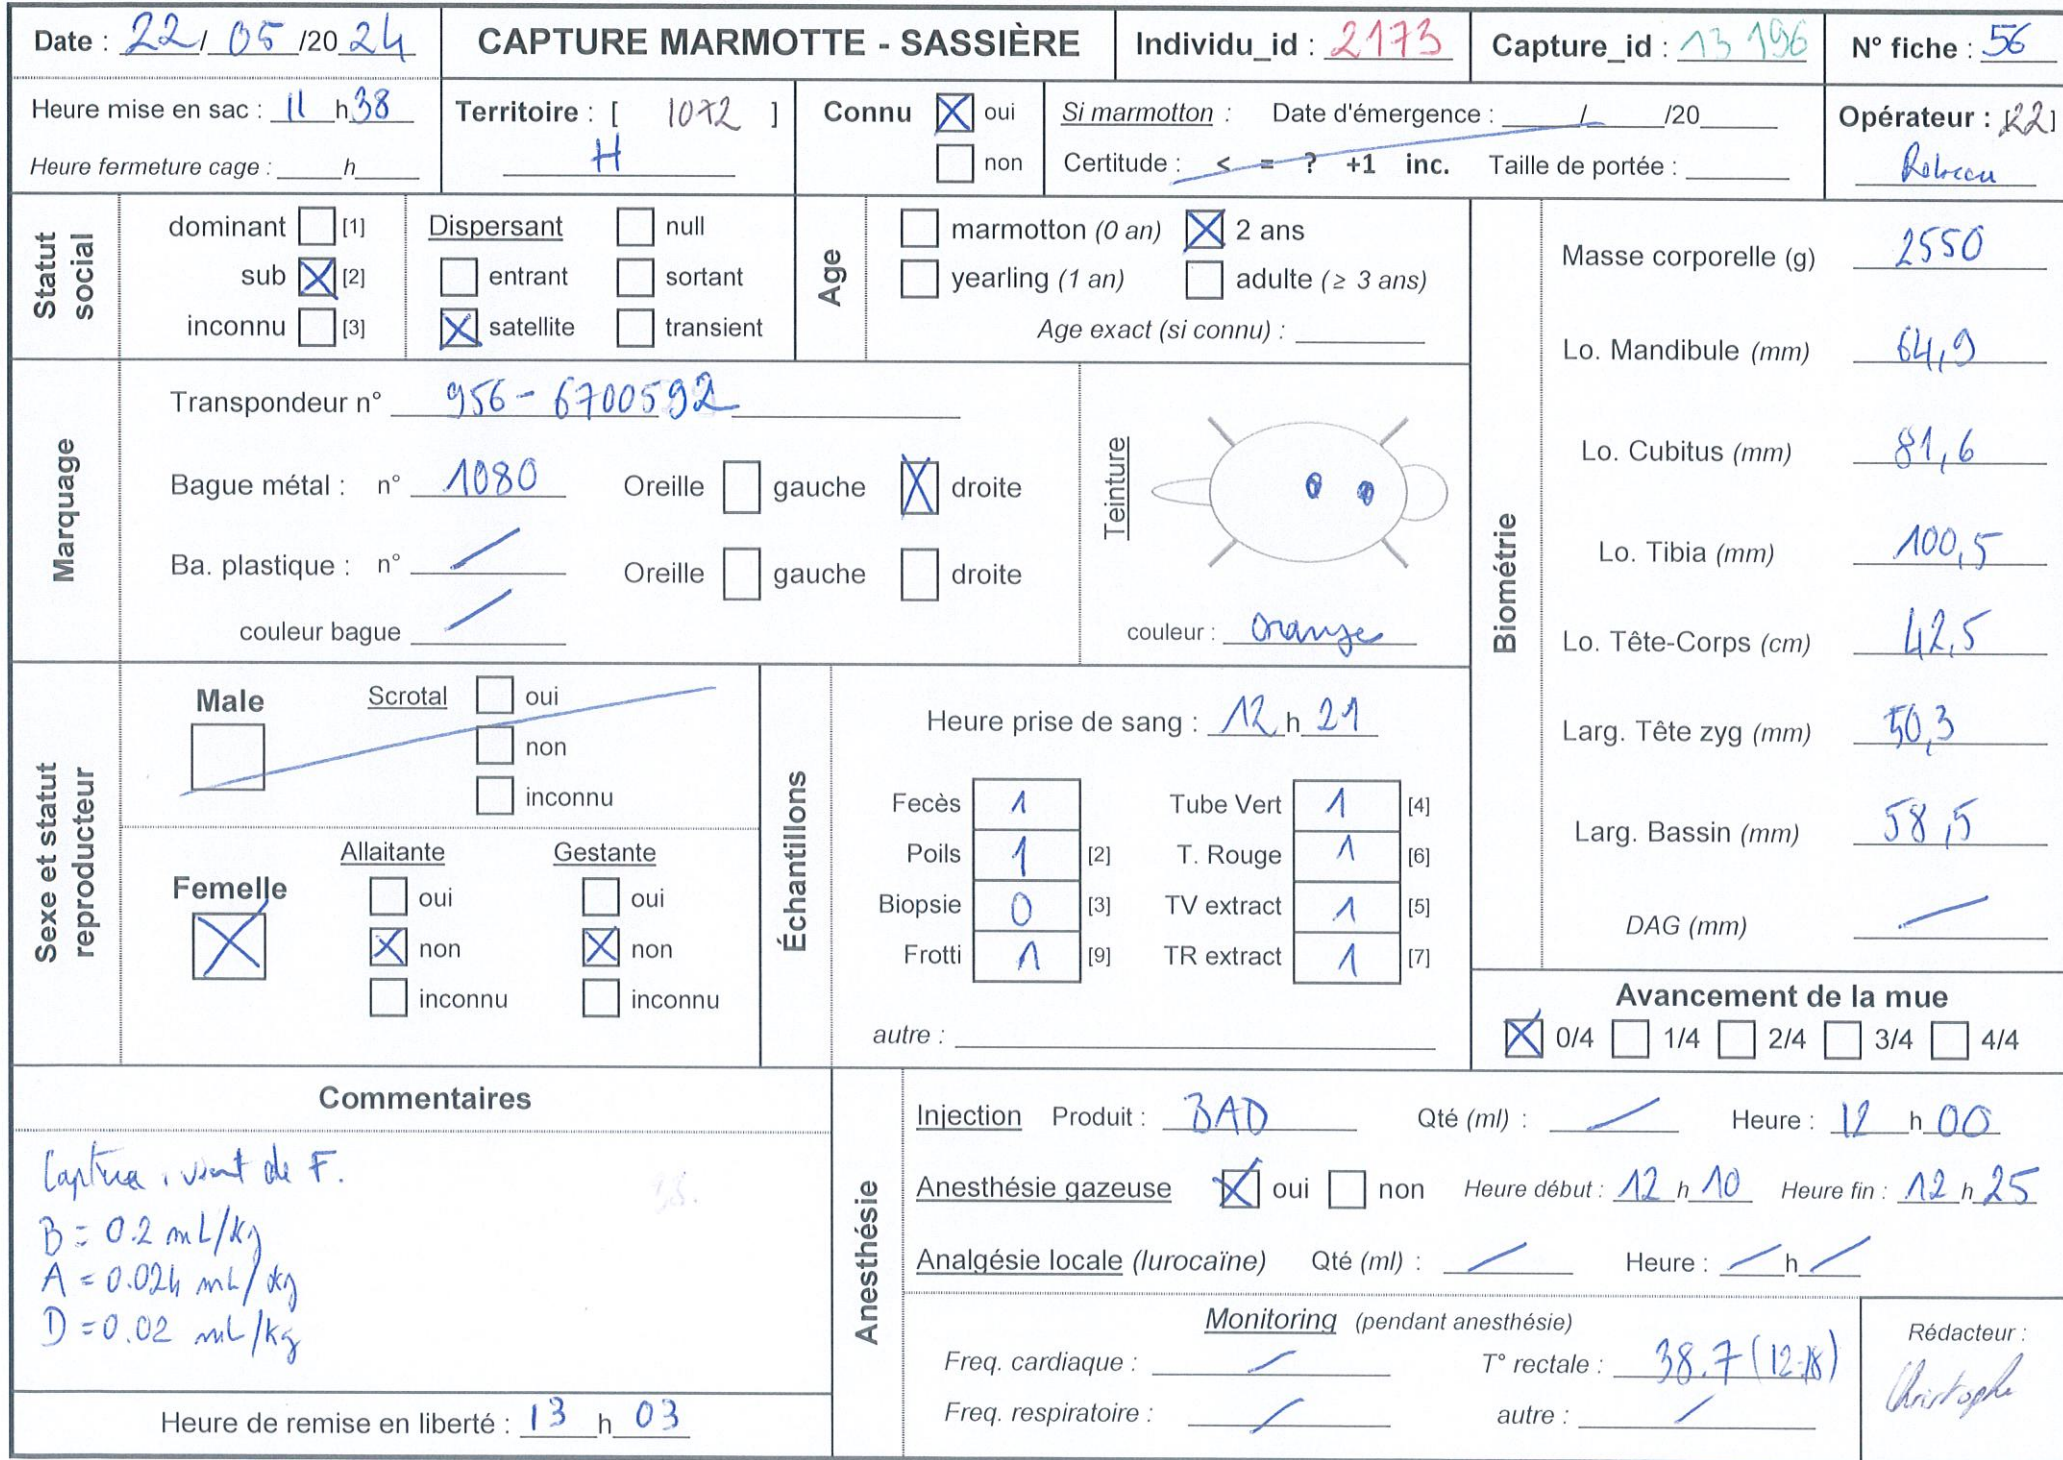 Date : 22/ 05 /20 24 CAPTURE MARMOTTE - SASSIÈRE Individu_id : 2173 Capture_id : 13 196 N° fiche : 56
Heure mise en sac : 11 h 38
Heure fermeture cage : ____h____
Territoire : [ 1072 ]
H
Connu oui
non
Si marmotton : Date d'émergence : ____/____/20____
Certitude : < = ? +1 inc. Taille de portée :
Opérateur : [22]
Statut social
dominant [1]
sub [2]
inconnu [3]
Dispersant null
entrant sortant
satellite transient
Age
marmotton (0 an) 2 ans
yearling (1 an) adulte (≥ 3 ans)
Age exact (si connu) :
Marquage
Transpondeur n° 956-6700592
Bague métal : n° 1080 Oreille gauche droite
Ba. plastique : n° Oreille gauche droite
couleur bague
Teinture
couleur : Orange
Biométrie
Masse corporelle (g) 2550
Lo. Mandibule (mm) 64,9
Lo. Cubitus (mm) 81,6
Lo. Tibia (mm) 100,5
Lo. Tête-Corps (cm) 42,5
Larg. Tête zyg (mm) 50,3
Larg. Bassin (mm) 58,5
DAG (mm)
Avancement de la mue
0/4 1/4 2/4 3/4 4/4
Sexe et statut reproducteur
Male Scrotal oui
non
inconnu
Femelle
Allaitante Gestante
oui oui
non non
inconnu inconnu
Échantillons
Heure prise de sang : 12 h 21
Fecès 1 Tube Vert 1 [4]
Poils 1 [2] T. Rouge 1 [6]
Biopsie 0 [3] TV extract 1 [5]
Frotti 1 [9] TR extract 1 [7]
autre :
Commentaires
vient de F.
B = 0.2 mL/kg
A = 0.024 mL/kg
D = 0.02 mL/kg
Heure de remise en liberté : 13 h 03
Anesthésie
Injection Produit : BAD Qté (ml) : Heure : 12 h 00
Anesthésie gazeuse oui non Heure début : 12 h 10 Heure fin : 12 h 25
Analgésie locale (lurocaïne) Qté (ml) : Heure : h
Monitoring (pendant anesthésie)
Freq. cardiaque : T° rectale : 38.7 (12:18)
Freq. respiratoire : autre :
Rédacteur :
Christophe